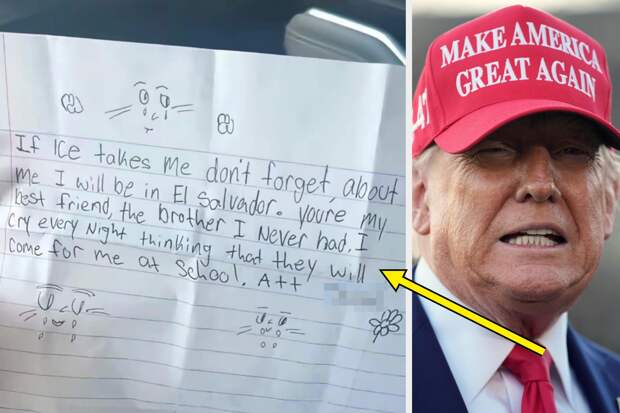 If Ice takes me don't forget about
me I will be in El Salvador. youre my
best friend, the brother I Never had. I
Cry every Night thinking that they will
Come for me at School. Att
MAKE AMERICA
GREAT AGAIN
47